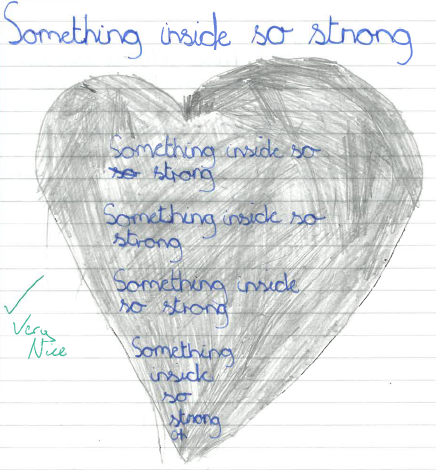 Something inside so strong
Something inside so
so strong
Something inside so
strong
Something inside
so strong
Something
inside
so
strong
✓
Very
Nice